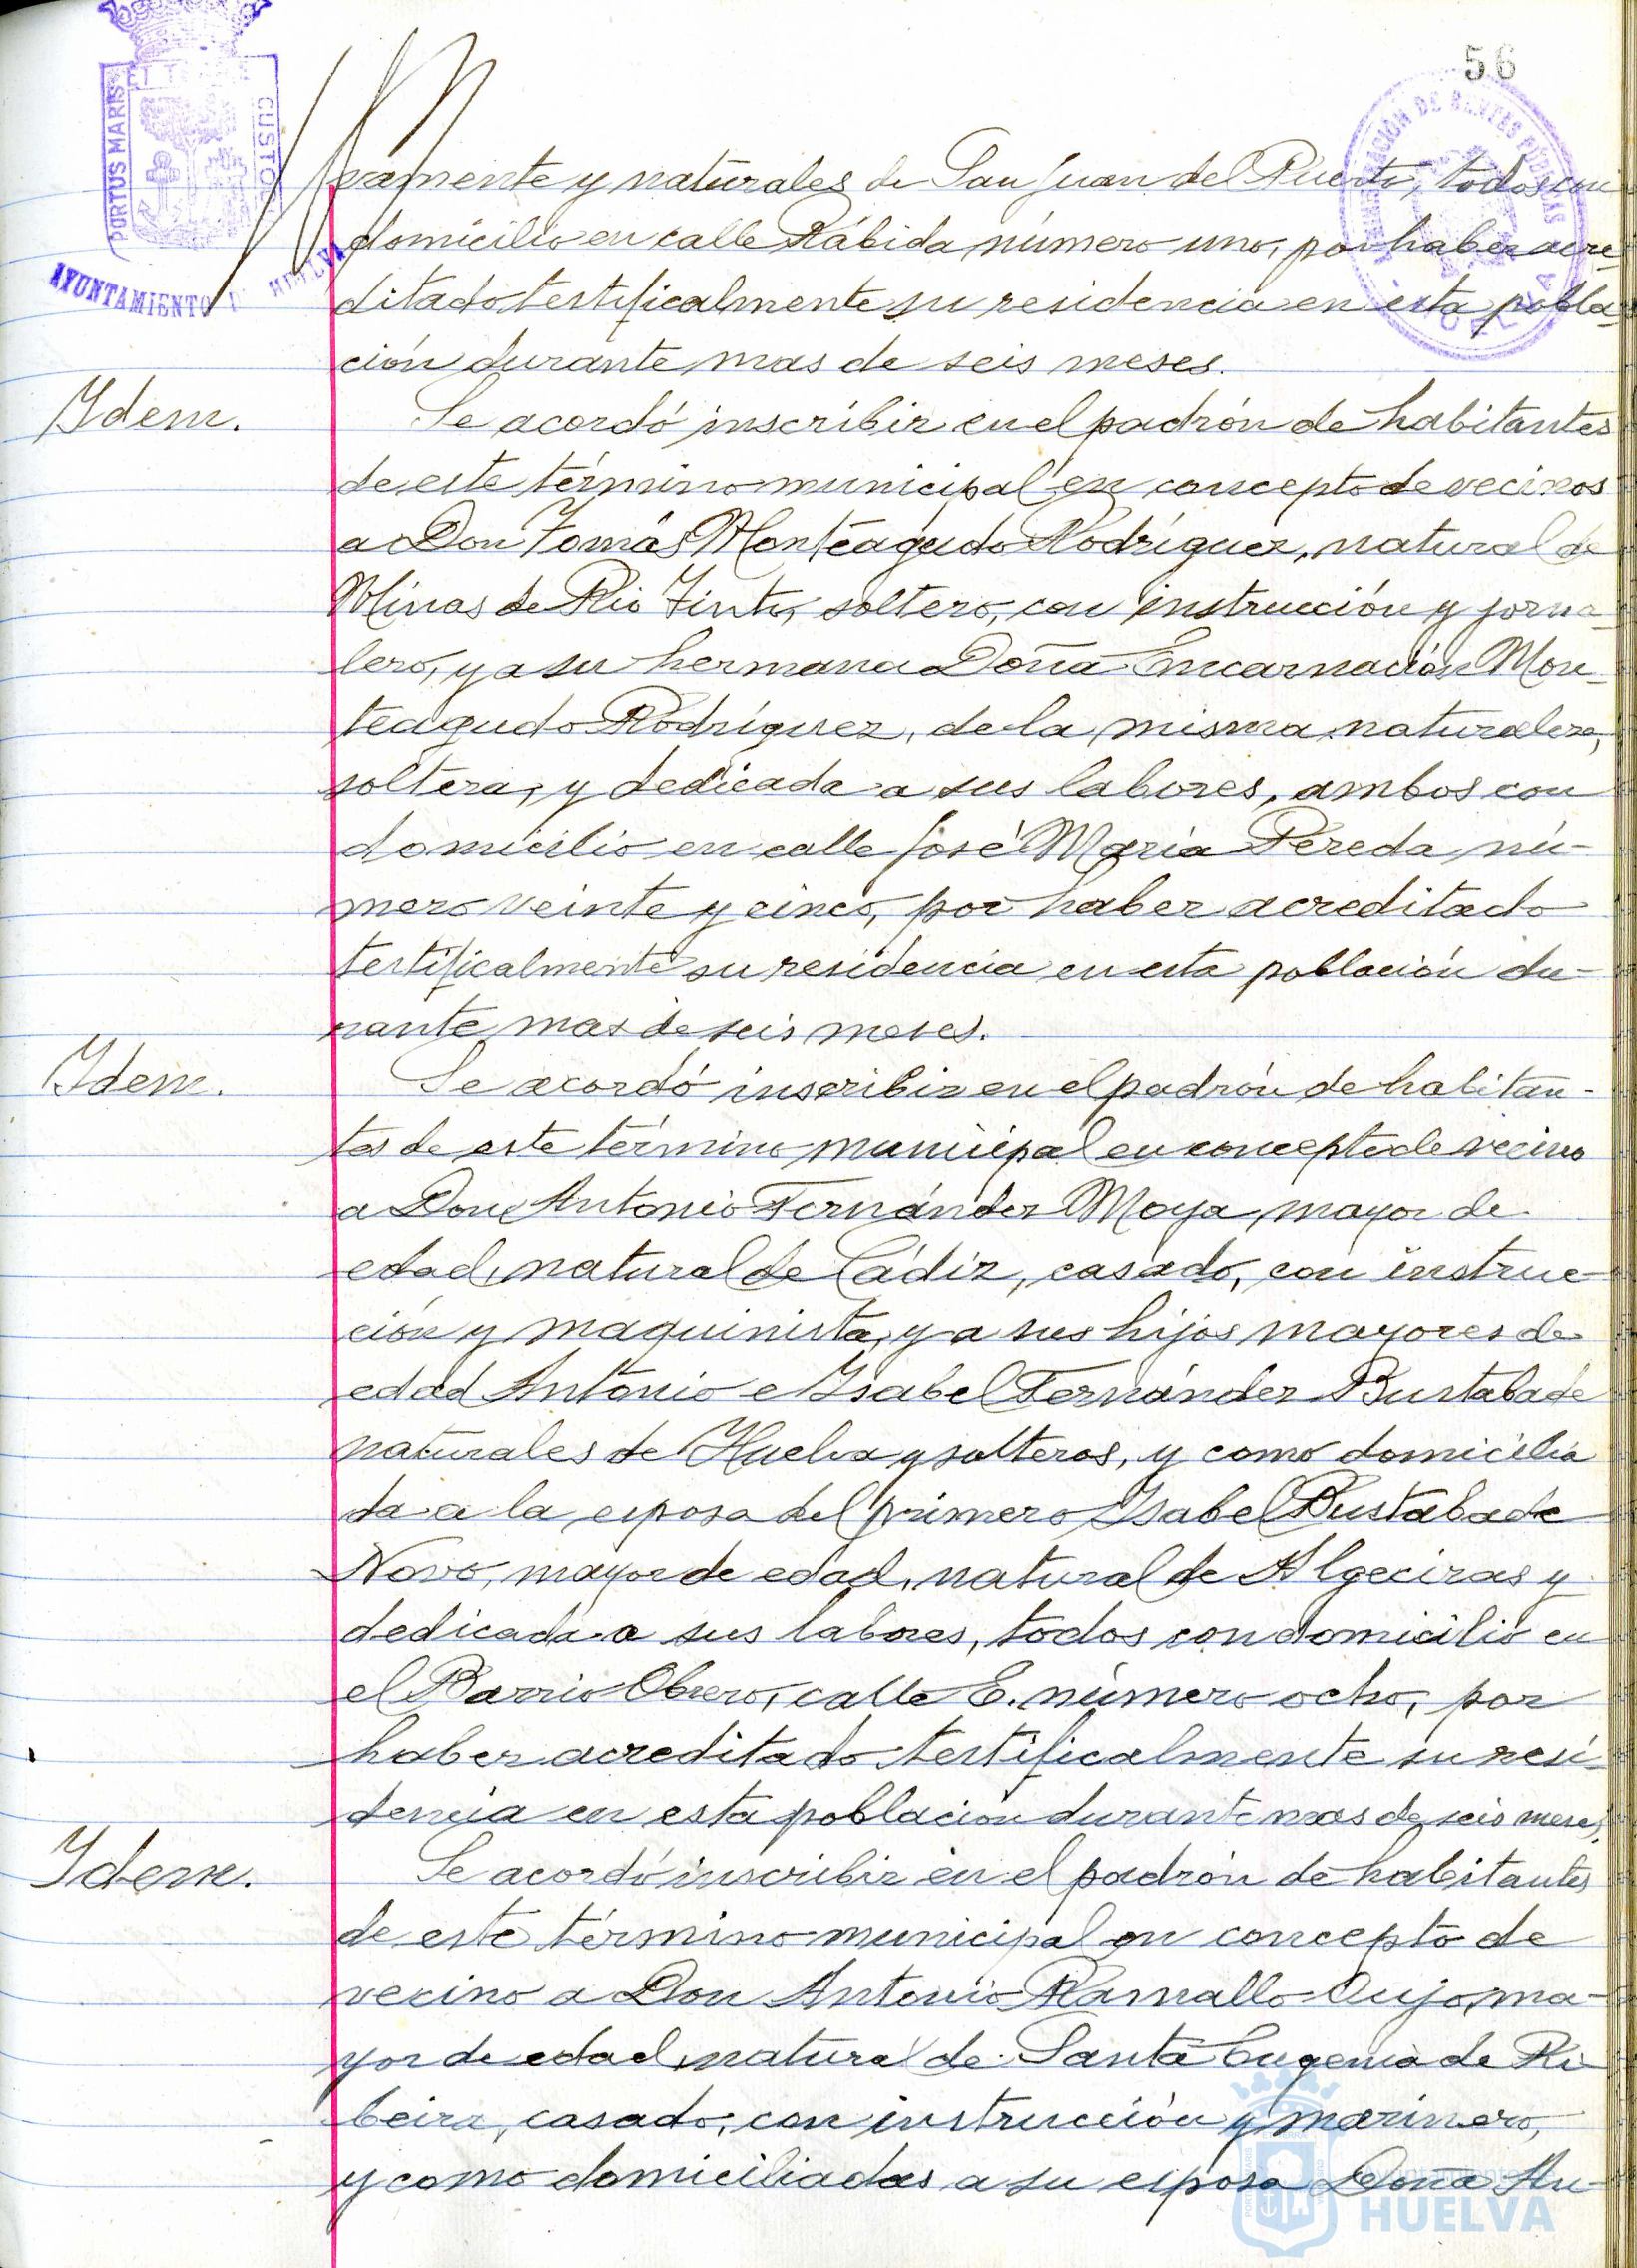 56
PORTUS MARIS ET TERRÆ CUSTODIA
AYUNTAMIENTO DE HUELVA
vamente y naturales de San Juan del Puerto, todos con
domicilio en calle Rábida número uno, por haber acre-
ditado testificalmente su residencia en esta pobla-
ción durante mas de seis meses.
Idem. Se acordó inscribir en el padrón de habitantes
de este término municipal en concepto de vecinos
a Don Tomás Monteagudo Rodríguez, natural de
Minas de Rio Tinto, soltero, con instrucción y jorna-
lero, y a su hermana Doña Encarnación Mon-
teagudo Rodríguez, de la misma naturaleza,
soltera, y dedicada a sus labores, ambos con
domicilio en calle José María Pereda nú-
mero veinte y cinco, por haber acreditado
testificalmente su residencia en esta población du-
rante mas de seis meses.
Idem. Se acordó inscribir en el padrón de habitan-
tes de este término municipal en concepto de vecino
a Don Antonio Fernández Moya, mayor de
edad, natural de Cádiz, casado, con instruc-
ción y maquinista, y a sus hijos mayores de
edad Antonio e Isabel Fernández Bustabade
naturales de Huelva y solteros, y como domicilia
da a la esposa del primero Isabel Bustabade
Novo, mayor de edad, natural de Algeciras y
dedicada a sus labores, todos con domicilio en
el Barrio Obrero, calle E. número ocho, por
haber acreditado testificalmente su resi-
dencia en esta población durante mas de seis meses.
Idem. Se acordó inscribir en el padrón de habitantes
de este término municipal en concepto de
vecino a Don Antonio Ramallo Oujo, ma-
yor de edad, natural de Santa Eugenia de Ri-
beira, casado, con instrucción y marinero,
y como domiciliadas a su esposa Doña Au-
HUELVA